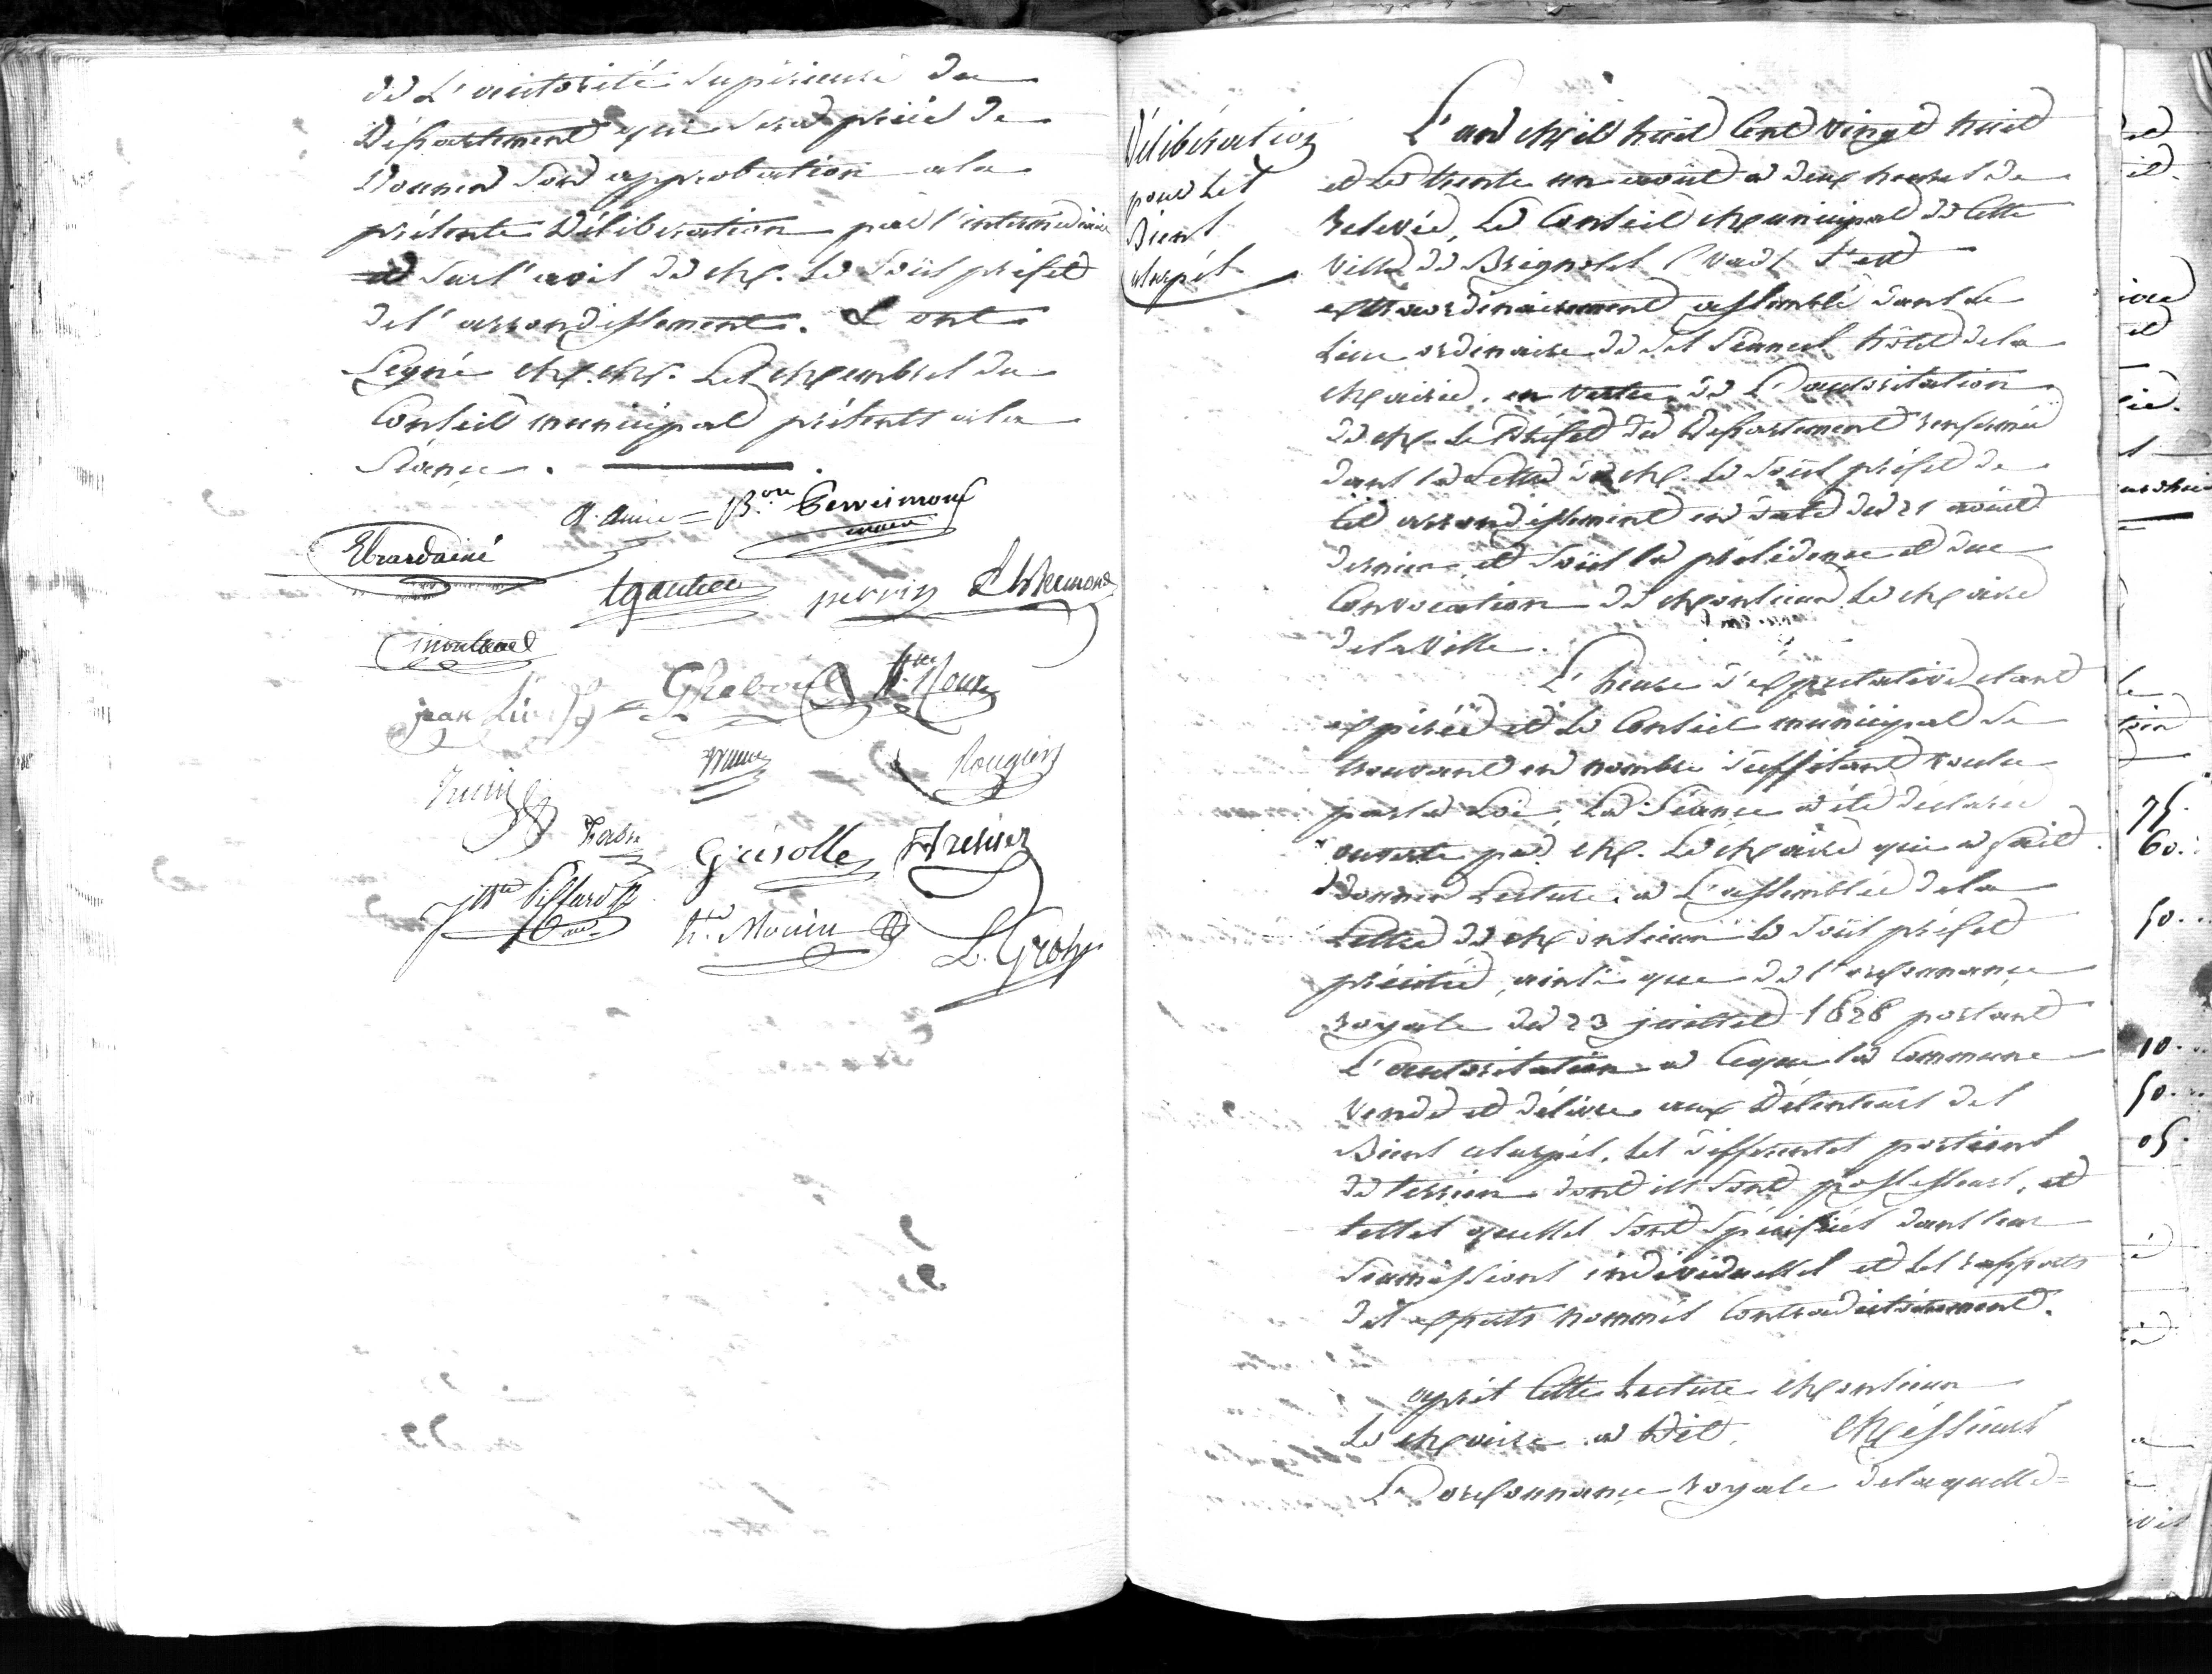 de L'autorité Supérieure du
Département qui sera priée de
Donner son approbation a la
présente Délibération par l'intermédiaire
et sur l'avis de M. le sous préfet
de l'arrondissement. Et ont
Signé M.M. Les Membres du
Conseil municipal présents a la
Séance.
maire
Ebrardainé
tgautier perrin
jean
Rougier
Fabre Grisolle
L. Grob
Délibération
pour les
Biens
usurpés
L'an Mil huit Cent vingt huit
et le trente un août a deux heures de
relevée, Le Conseil Municipal de Cette
Ville de Brignoles (var) s'est
extraordinairement assemblé dans le
Lieu ordinaire de ses Séances, hôtel de la
Mairie, en vertu de L'autorisation
de M. le Préfet du Département renfermée
dans la Lettre de M. le sous préfet de
Cet arrondissement en date du 21 août
dernier, et sous la présidence et due
Convocation de Monsieur le Maire
de la Ville.
L'heure d'expectative étant
expirée et le Conseil municipal se
trouvant en nombre suffisant voulu
par la Loi, La Séance a été déclarée
ouverte par M. Le Maire qui a fait
donner Lecture a L'assemblée de la
Lettre de Monsieur le sous préfet
précitée, ainsi que de l'ordonnance
royale du 23 juillet 1828 portant
L'autorisation a Ceque la Commune
vende et délivre aux Détenteurs des
Biens usurpés, les différentes portions
de terrein dont ils sont possesseurs, et
telles quelles sont spécifiées dans leur
soumissions individuelles et les rapports
des experts nommés Contradictoirement.
après Cette Lecture Monsieur
Le Maire a Dit, Messieurs
L'ordonnance royale delaquelle=
75.
60.
50..
10..
50..
05.